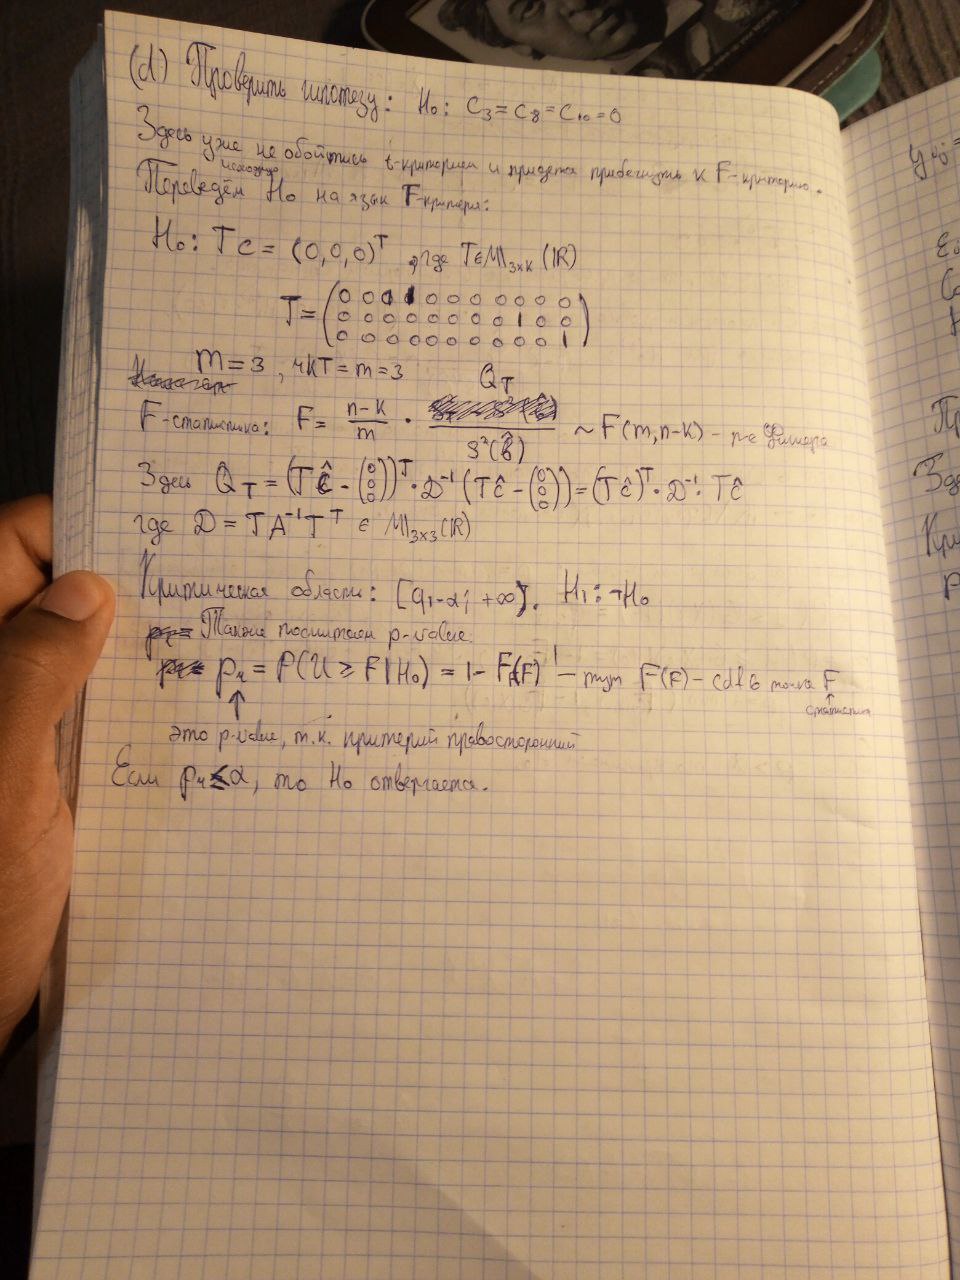 (d) Проверить гипотезу: H₀: C₃=C₈=C₁₀=0
Здесь уже не обойтись t-критерием и придется прибегнуть к F-критерию.
исходную
Переведём H₀ на язык F-критерия:
H₀: Tc = (0,0,0)ᵀ, где T∈M₃ₓₖ(ℝ)
T = (0 0 1 0 0 0 0 0 0 0
0 0 0 0 0 0 0 1 0 0
0 0 0 0 0 0 0 0 0 1)
m=3, rkT=m=3
F-статистика: F = (n-k)/m · Q_T/S²(b̂) ~ F(m,n-k) - р-е Фишера
Здесь Q_T = (Tĉ - (0 0 0))ᵀ · D⁻¹ (Tĉ - (0 0 0)) = (Tĉ)ᵀ · D⁻¹ · Tĉ
где D = TA⁻¹Tᵀ ∈ M₃ₓ₃(ℝ)
Критическая область: [q₁₋α; +∞). H₁: ¬H₀
Также посчитаем p-value:
pᵣ = P(U ≥ F | H₀) = 1 - F(F) - тут F(F) - cdf в точке F
↑ статистика
это p-value, т.к. критерий правосторонний
Если pᵣ ≤ α, то H₀ отвергается.